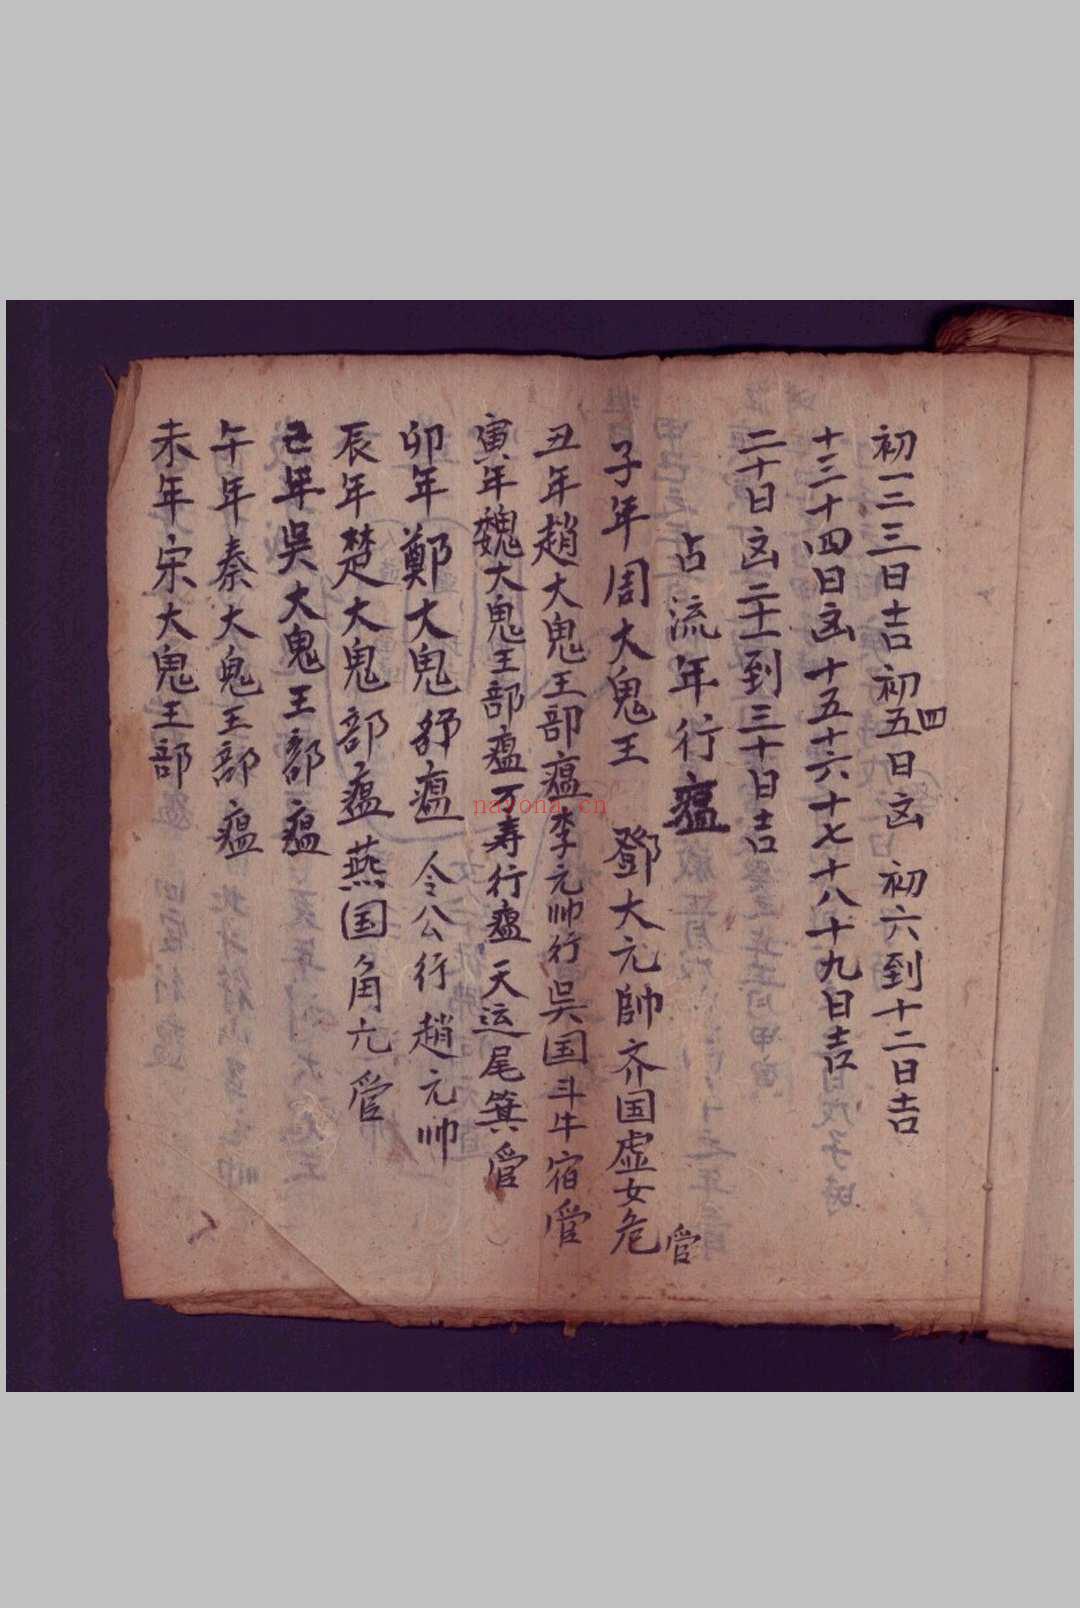 初一二三日吉初四五日凶 初六到十二日吉
十三十四日凶十五十六十七十八十九日吉
二十日凶二十一到三十日吉
占流年行瘟
子年周大鬼王 鄧大元帥齐国虚女危管
丑年趙大鬼王部瘟李元帅行吳国斗牛宿管
寅年魏大鬼王部瘟万寿行瘟天运尾箕管
卯年鄭大鬼 瘟 令公行趙元帅
辰年楚大鬼部瘟燕国角亢管
巳年吳大鬼王部瘟
午年秦大鬼王部瘟
未年宋大鬼王部
nayona.cn